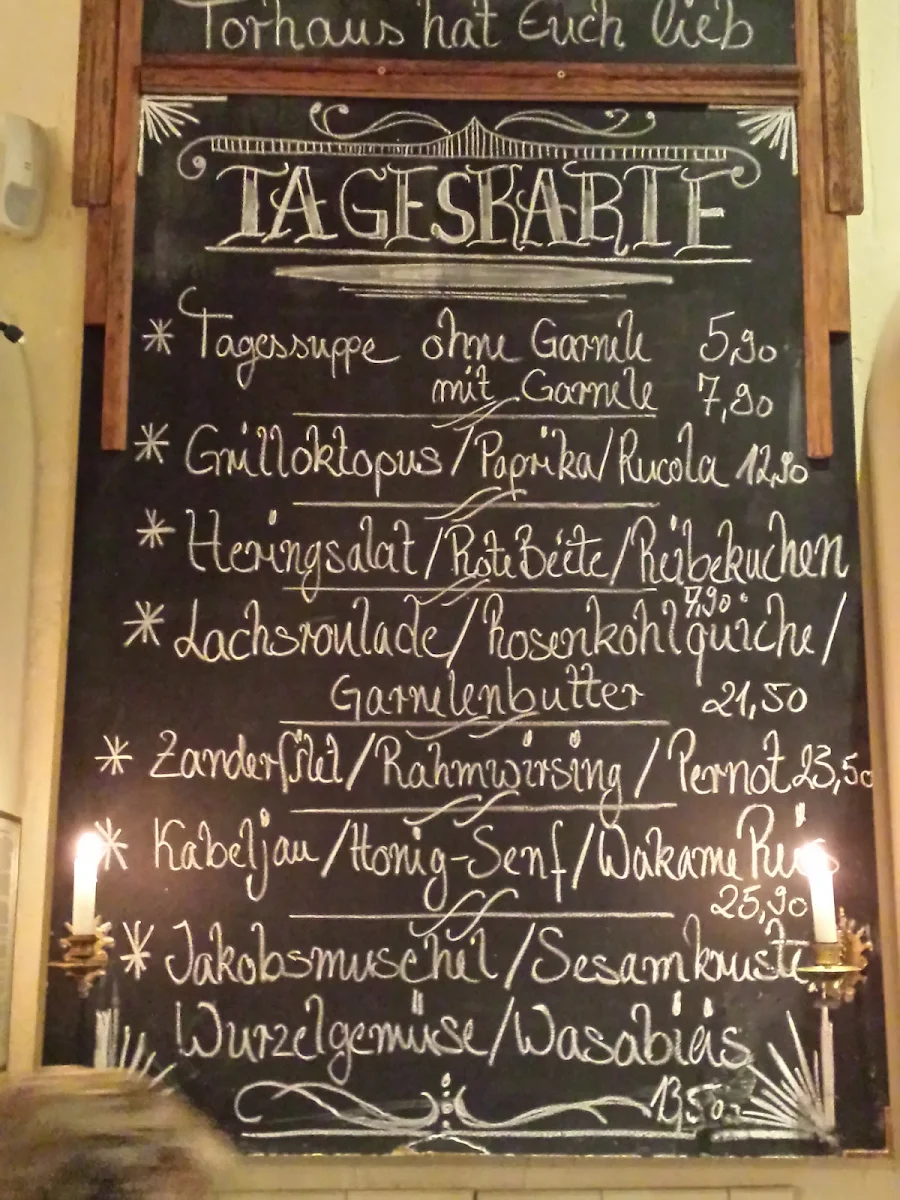 Torhaus hat Euch lieb
TAGESKARTE
* Tagessuppe ohne Garnele 5,90
mit Garnele 7,90
* Grilloktopus/Paprika/Rucola 12,90
* Heringsalat/Rote Beete/Reibekuchen
7,90
* Lachsroulade/Rosenkohlquiche/
Garnelenbutter 21,50
* Zanderfilet/Rahmwirsing/Pernot 23,50
* Kabeljau/Honig-Senf/Wakame Reis
25,90
* Jakobsmuschel/Sesamkruste
Wurzelgemüse/Wasabieis
13,50